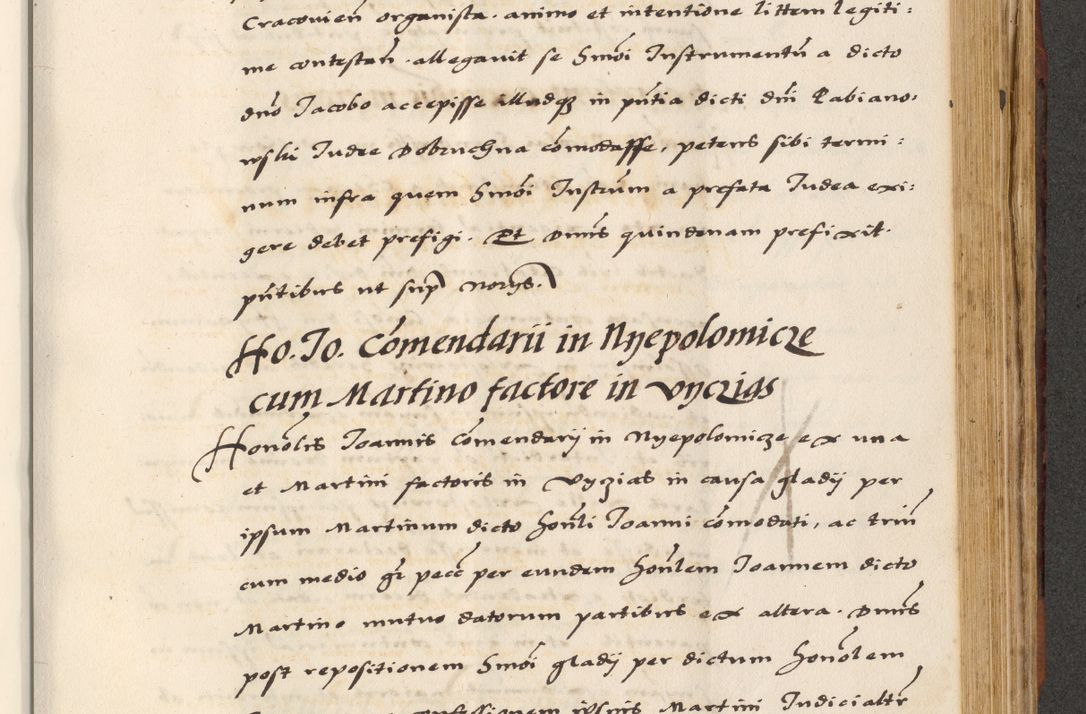 Cracovień organista. animo et intentione littem legiti:
me contestań. allegavit se Hmoi Instrumentū a dicto
dno Iacobo accepisse illudqz in pñtia dicti dñi Rabiano:
wski Iudee Dobruchna cōmodasse, petens sibi termi:
num infra quem Hmoi Instrūm a prefata Iudea exi:
gere debet prefigi. Et Dnus quindenam prefixit.
pñtibus ut sup Norijs.
Ho. Io. Cōmendarii in Nyepolomicze
cum Martino factore in Vyczigs
Honōlis Ioannis Cōmendarij in Nyepolomicze ex una
et Martini factoris in Vyczias in causa gladij per
ipsum Martinum dicto honli Ioanni cōmodati, ac triū
cum medio gr pecc per eundem honlem Ioannem dicto
Martino mutuo datorum partibus ex altera. Dnus
post repositionem Hmoi gladij per dictum honōlem
ipsius Martini Iudicialtr